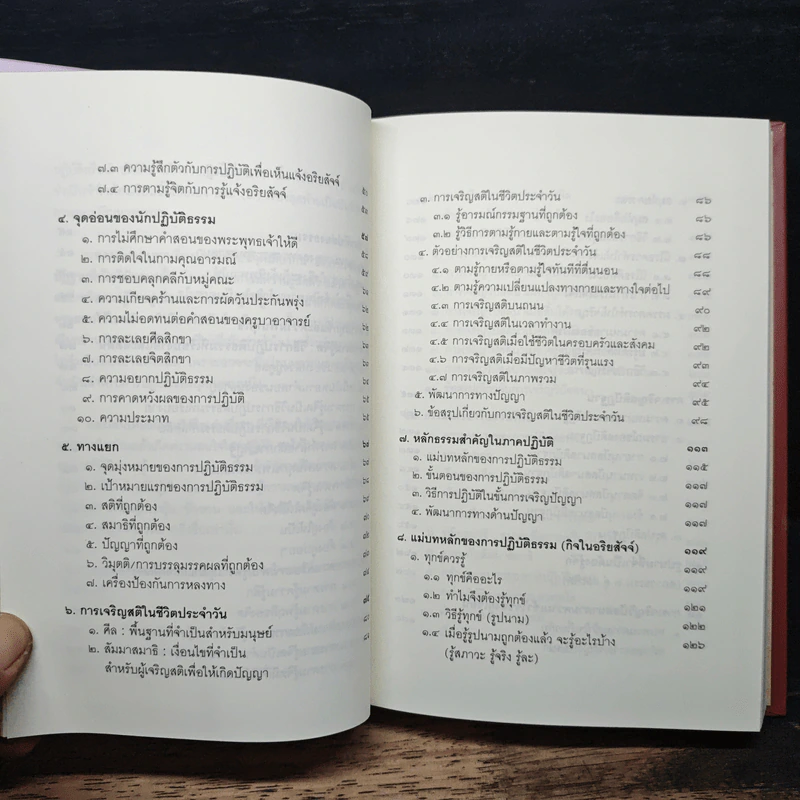 ๗.๓ ความรู้สึกตัวกับการปฏิบัติเพื่อเห็นแจ้งอริยสัจจ์
๗.๔ การตามรู้จิตกับการรู้แจ้งอริยสัจจ์
๔. จุดอ่อนของนักปฏิบัติธรรม
๑. การไม่ศึกษาคำสอนของพระพุทธเจ้าให้ดี
๒. การติดใจในกามคุณอารมณ์
๓. การชอบคลุกคลีกับหมู่คณะ
๔. ความเกียจคร้านและการผัดวันประกันพรุ่ง
๕. ความไม่อดทนต่อคำสอนของครูบาอาจารย์
๖. การละเลยศีลสิกขา
๗. การละเลยจิตสิกขา
๘. ความอยากปฏิบัติธรรม
๙. การคาดหวังผลของการปฏิบัติ
๑๐. ความประมาท
๕. ทางแยก
๑. จุดมุ่งหมายของการปฏิบัติธรรม
๒. เป้าหมายแรกของการปฏิบัติธรรม
๓. สติที่ถูกต้อง
๔. สมาธิที่ถูกต้อง
๕. ปัญญาที่ถูกต้อง
๖. วิมุตติ/การบรรลุมรรคผลที่ถูกต้อง
๗. เครื่องป้องกันการหลงทาง
๖. การเจริญสติในชีวิตประจำวัน
๑. ศีล : พื้นฐานที่จำเป็นสำหรับมนุษย์
๒. สัมมาสมาธิ : เงื่อนไขที่จำเป็น
สำหรับผู้เจริญสติเพื่อให้เกิดปัญญา
๓. การเจริญสติในชีวิตประจำวัน ๘๖
๓.๑ รู้อารมณ์กรรมฐานที่ถูกต้อง ๘๖
๓.๒ รู้วิธีการตามรู้กายและตามรู้ใจที่ถูกต้อง ๘๖
๔. ตัวอย่างการเจริญสติในชีวิตประจำวัน ๘๘
๔.๑ ตามรู้กายหรือตามรู้ใจทันทีที่ตื่นนอน ๘๘
๔.๒ ตามรู้ความเปลี่ยนแปลงทางกายและทางใจต่อไป ๘๙
๔.๓ การเจริญสติบนถนน ๙๐
๔.๔ การเจริญสติในเวลาทำงาน ๙๒
๔.๕ การเจริญสติเมื่อใช้ชีวิตในครอบครัวและสังคม ๙๒
๔.๖ การเจริญสติเมื่อมีปัญหาชีวิตที่รุนแรง ๙๓
๔.๗ การเจริญสติในภาพรวม ๙๔
๕. พัฒนาการทางปัญญา ๙๕
๖. ข้อสรุปเกี่ยวกับการเจริญสติในชีวิตประจำวัน ๙๘
๗. หลักธรรมสำคัญในภาคปฏิบัติ ๑๑๓
๑. แม่บทหลักของการปฏิบัติธรรม ๑๑๕
๒. ขั้นตอนของการปฏิบัติธรรม ๑๑๗
๓. วิธีการปฏิบัติในขั้นการเจริญปัญญา ๑๑๗
๔. พัฒนาการทางด้านปัญญา ๑๑๗
๘. แม่บทหลักของการปฏิบัติธรรม (กิจในอริยสัจจ์) ๑๑๙
๑. ทุกข์ควรรู้ ๑๑๙
๑.๑ ทุกข์คืออะไร ๑๑๙
๑.๒ ทำไมจึงต้องรู้ทุกข์ ๑๒๑
๑.๓ วิธีรู้ทุกข์ (รูปนาม) ๑๒๒
๑.๔ เมื่อรู้รูปนามถูกต้องแล้ว จะรู้อะไรบ้าง ๑๒๖
(รู้สภาวะ รู้จริง รู้ละ)